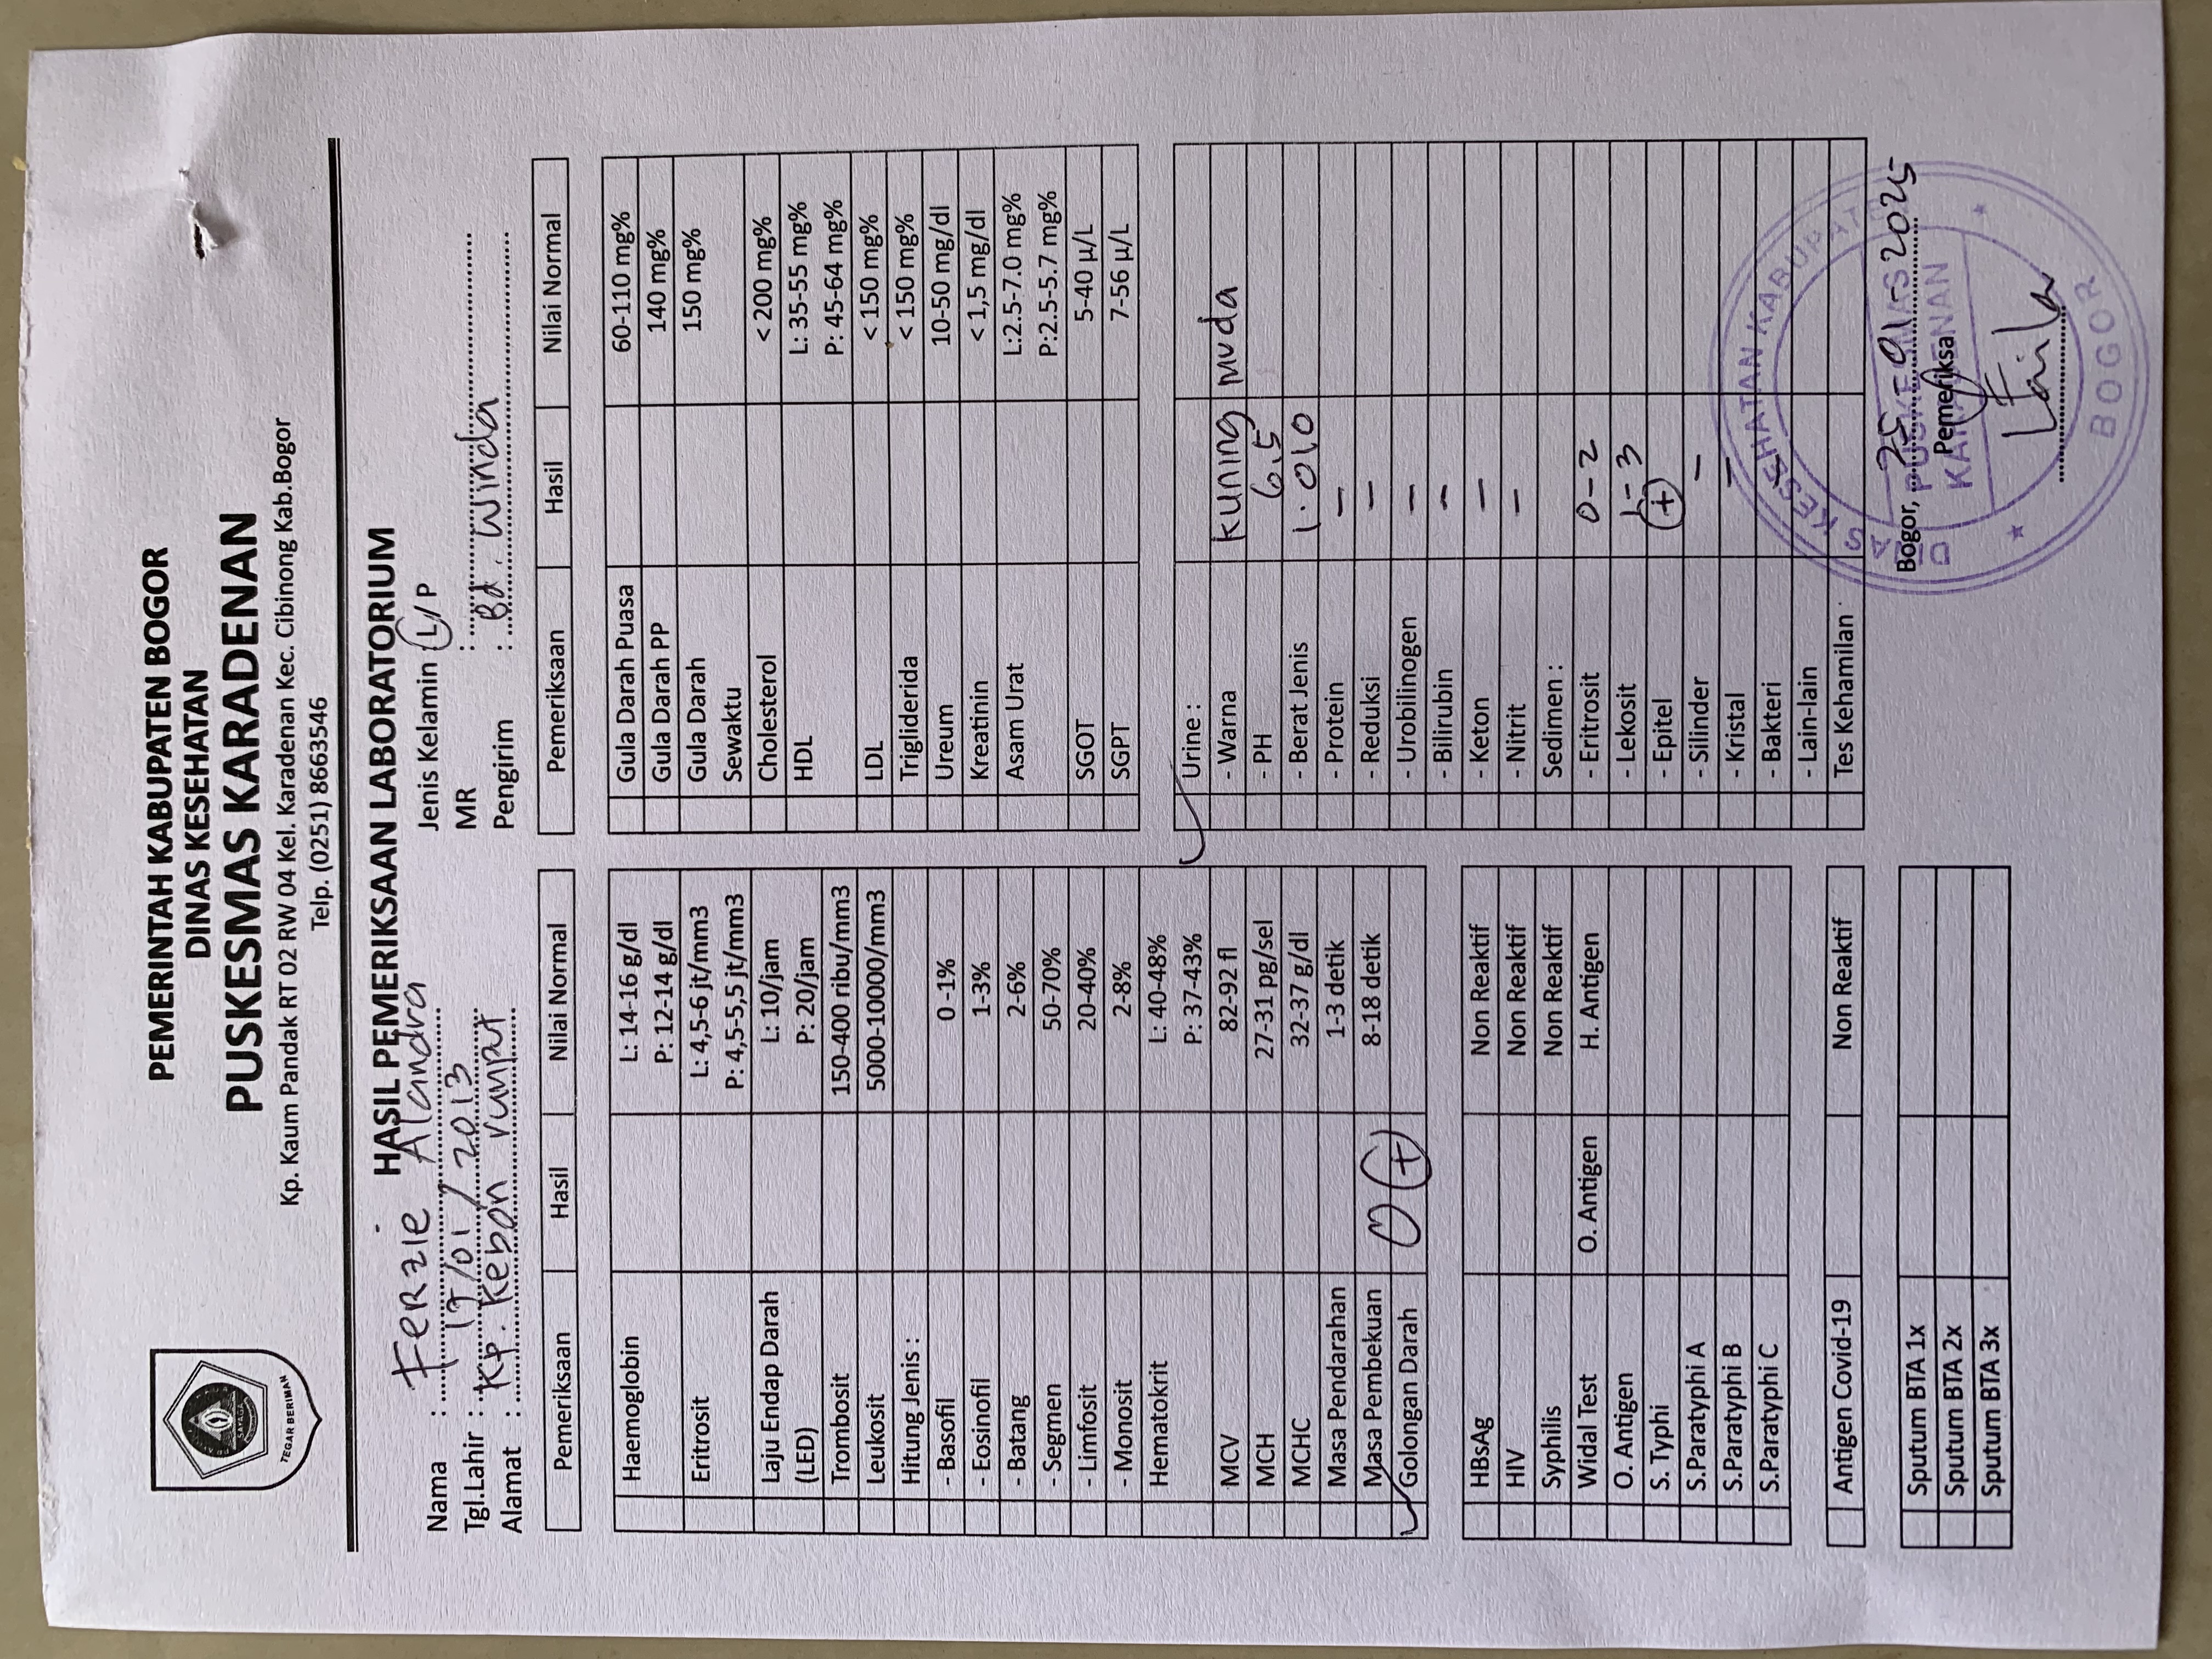 PEMERINTAH KABUPATEN BOGOR
DINAS KESEHATAN
PUSKESMAS KARADENAN
Kp. Kaum Pandak RT 02 RW 04 Kel. Karadenan Kec. Cibinong Kab.Bogor
Telp. (0251) 8663546
TEGAR BERIMAN
HASIL PEMERIKSAAN LABORATORIUM
Nama : Ferzie Alandra
Tgl.Lahir : 17/01/2013
Alamat : Kp. Kebon rumput
Jenis Kelamin L/ P
MR :
Pengirim : Bd. Winda
Pemeriksaan Hasil Nilai Normal
Haemoglobin L: 14-16 g/dl
P: 12-14 g/dl
Eritrosit L: 4,5-6 jt/mm3
P: 4,5-5,5 jt/mm3
Laju Endap Darah L: 10/jam
(LED) P: 20/jam
Trombosit 150-400 ribu/mm3
Leukosit 5000-10000/mm3
Hitung Jenis :
- Basofil 0 -1%
- Eosinofil 1-3%
- Batang 2-6%
- Segmen 50-70%
- Limfosit 20-40%
- Monosit 2-8%
Hematokrit L: 40-48%
P: 37-43%
MCV 82-92 fl
MCH 27-31 pg/sel
MCHC 32-37 g/dl
Masa Pendarahan 1-3 detik
Masa Pembekuan 8-18 detik
Golongan Darah O (+)
HBsAg Non Reaktif
HIV Non Reaktif
Syphilis Non Reaktif
Widal Test O. Antigen H. Antigen
O. Antigen
S. Typhi
S.Paratyphi A
S.Paratyphi B
S.Paratyphi C
Antigen Covid-19 Non Reaktif
Sputum BTA 1x
Sputum BTA 2x
Sputum BTA 3x
Pemeriksaan Hasil Nilai Normal
Gula Darah Puasa 60-110 mg%
Gula Darah PP 140 mg%
Gula Darah 150 mg%
Sewaktu
Cholesterol < 200 mg%
HDL L: 35-55 mg%
P: 45-64 mg%
LDL < 150 mg%
Trigliderida < 150 mg%
Ureum 10-50 mg/dl
Kreatinin < 1,5 mg/dl
Asam Urat L:2.5-7.0 mg%
P:2.5-5.7 mg%
SGOT 5-40 µ/L
SGPT 7-56 µ/L
Urine :
- Warna kuning muda
- PH 6.5
- Berat Jenis 1.010
- Protein -
- Reduksi -
- Urobilinogen -
- Bilirubin -
- Keton -
- Nitrit -
Sedimen :
- Eritrosit 0-2
- Lekosit 1-3
- Epitel (+)
- Silinder -
- Kristal -
- Bakteri -
- Lain-lain
Tes Kehamilan
Bogor, 25-01-2025
Pemeriksa
BOGOR